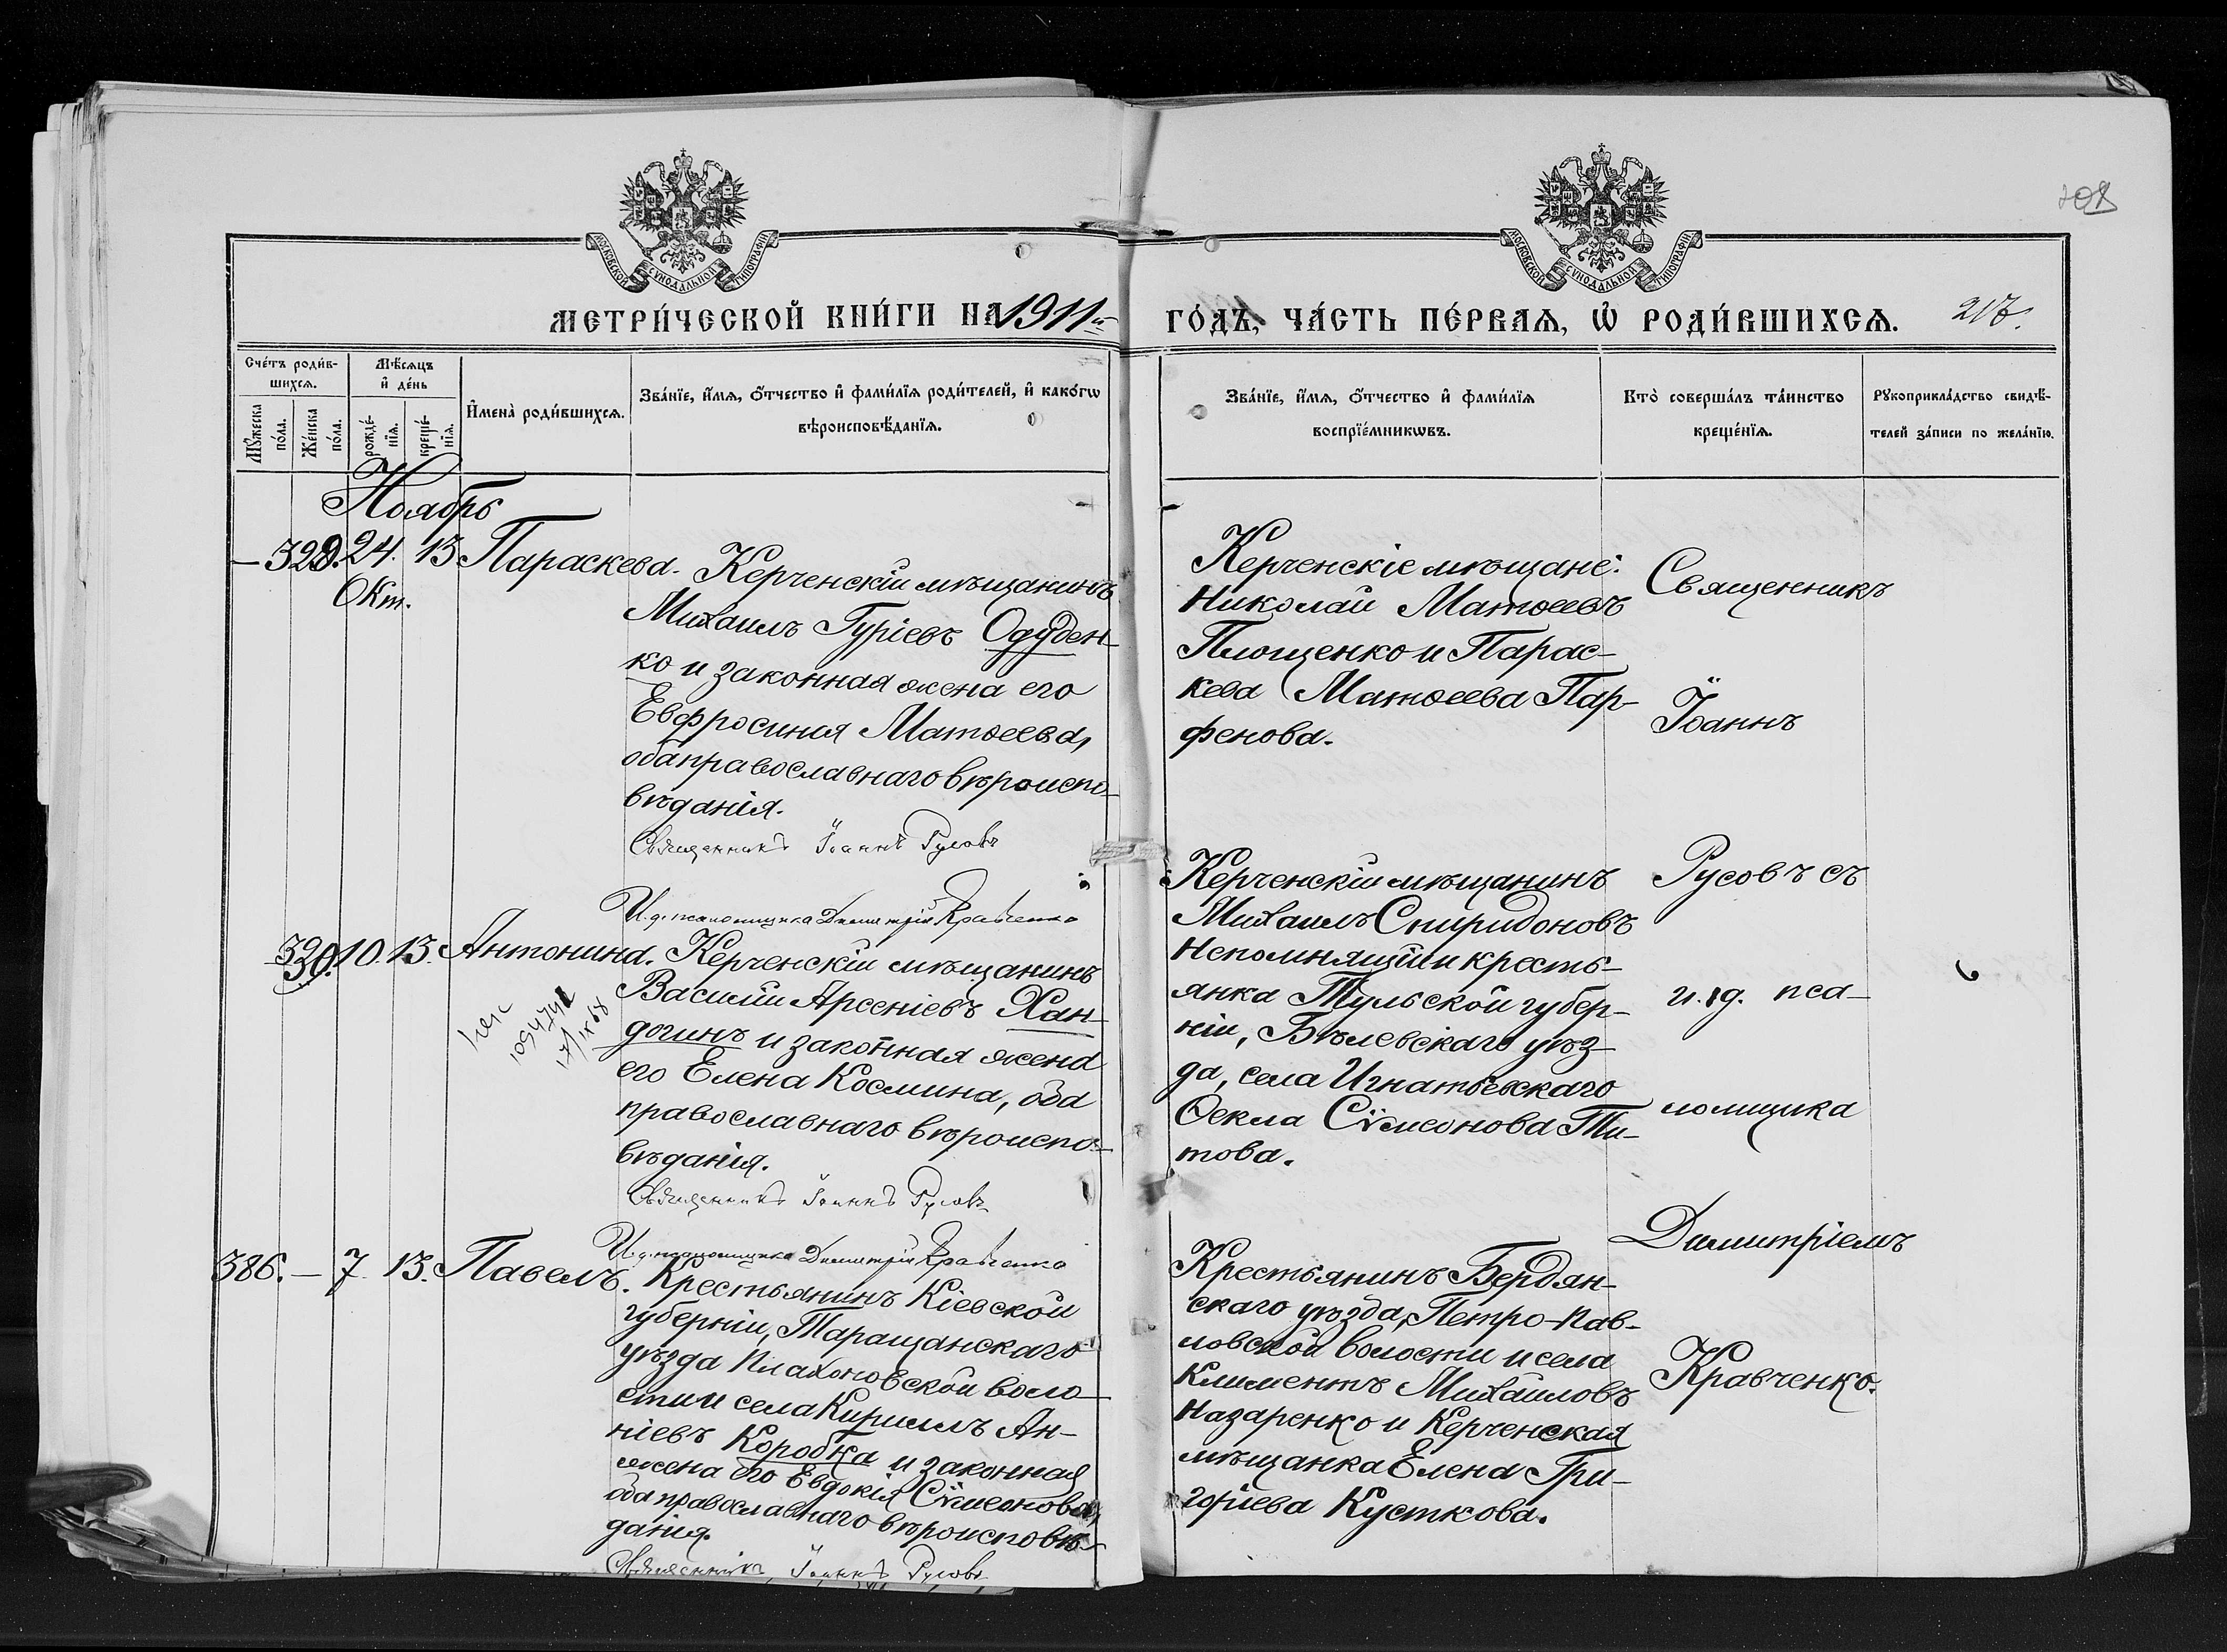 108
МОСКОВСКОЙ СѴНОДАЛЬНОЙ ТИПОГРАФІИ
МОСКОВСКОЙ СѴНОДАЛЬНОЙ ТИПОГРАФІИ
МЕТРИ́ЧЕСКОЙ КНИ́ГИ НА 1911й
ГО́ДЪ, ЧА́СТЬ ПЕ́РВАѦ, Ѡ҆ РОДИ́ВШИХСѦ.
Сче́тъ роди́в-
шихсѧ.
Мѣ́сѧцъ
и҆ де́нь
Мꙋ́жеска
по́ла.
Же́нска
по́ла.
рожде́-
нїѧ.
креще́-
нїѧ.
И҆мена̀ роди́вшихсѧ.
Зва́нїе, и҆́мѧ, ѻ҆́тчество и҆ фами́лїѧ роди́телей, и҆ како́гѡ
вѣроисповѣ́данїѧ.
Зва́нїе, и҆́мѧ, ѻ҆́тчество и҆ фами́лїѧ
воспрїе́мникѡвъ.
Кто̀ соверша́лъ та́инство
креще́нїѧ.
Рꙋкоприкла́дство свидѣ́-
телей за́писи по жела́нїю.
Ноябрь
— 329. 24. 13 Параскева.
Окт.
Керченскій мѣщанинъ
Михаилъ Гуріевъ Одуден-
ко и законная жена его
Евфросинія Матѳеева,
оба православнаго вѣроиспо-
вѣданія.
Священникъ Іоаннъ Русовъ
И. д. псаломщика Димитрій Кравченко
Керченскіе мѣщане:
Николай Матѳеевъ
Площенко и Парас-
кева Матѳеева Пар-
фенова.
Священникъ
Іоаннъ
Русовъ съ
и. д. пса-
ломщика
Димитріемъ
Кравченко.
330. 10. 13. Антонина.
Керченскій мѣщанинъ
Василій Арсеніевъ Хан-
догинъ и законная жена
его Елена Космина, оба
православнаго вѣроиспо-
вѣданія.
Священникъ Іоаннъ Русовъ
И. д. псаломщика Димитрій Кравченко
Керченскій мѣщанинъ
Михаилъ Спиридоновъ
Непомнящій и кресть-
янка Тульской губер-
ніи, Бѣлевскаго уѣз-
да, села Игнатьевскаго
Ѳекла Сѵмеонова Ти-
това.
386. — 7. 13. Павелъ.
Крестьянинъ Кіевской
губерніи, Таращанскаго
уѣзда Плахоновской воло-
сти и села Кириллъ Ан-
ніевъ Коробка и законная
жена его Евдокія Сѵмеонова,
оба православнаго вѣроисповѣ-
данія.
Священникъ Іоаннъ Русовъ
Крестьянинъ Бердян-
скаго уѣзда, Петро-Пав-
ловской волости и села
Климентъ Михаиловъ
Назаренко и Керченская
мѣщанка Елена Гри-
горіева Кусткова.